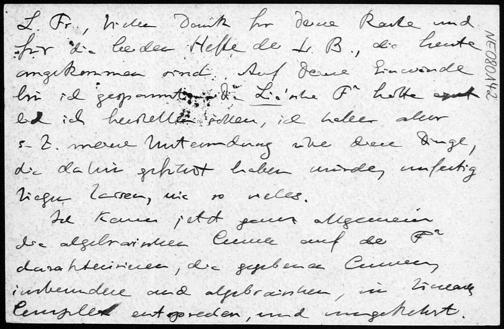 L. Fr., Vielen Dank für deine Karte und
für die beiden Hefte der L. B., die heute
angekommen sind. Auf deine Einwände
bin ich gespannt; die Lie'sche F² hätte
ich herstellen sollen, ich habe aber
s. Z. meine Untersuchung über diese Dinge,
die dahin geführt haben würden, unfertig
liegen lassen, wie so vieles.
Ich kann jetzt ganz allgemein
die algebraischen Curven auf der F²
charakterisieren, die gegebenen Curven,
insbesondere auch algebraischen, im linearen
Complex entsprechen, und umgekehrt.
NE080142